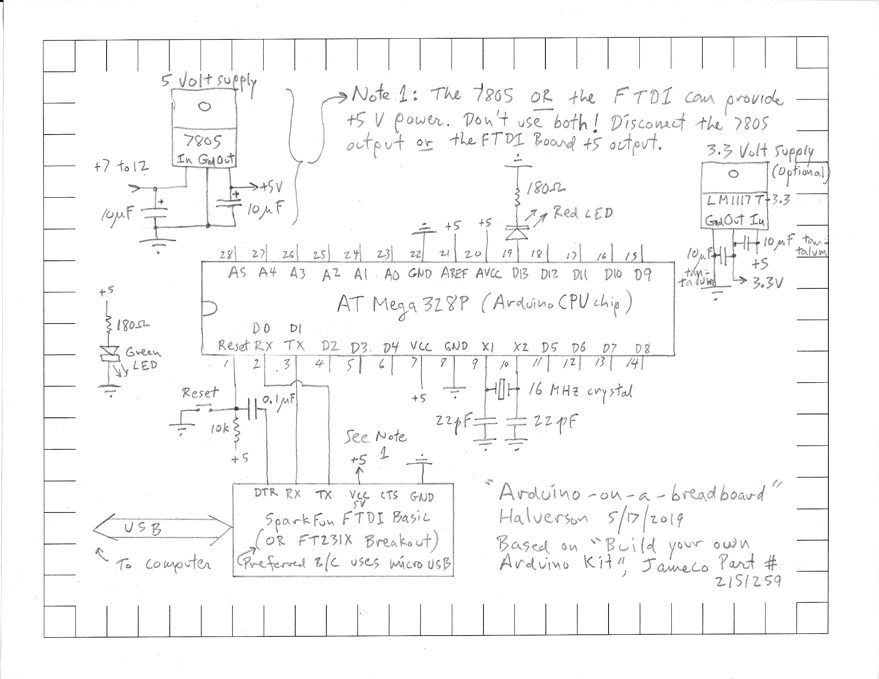 5 Volt supply
7805
In Gnd Out
+7 to 12
+5V
10µF
10µF
Note 1: The 7805 OR the FTDI can provide
+5 V power. Don't use both! Disconect the 7805
output or the FTDI Board +5 output.
3.3 Volt Supply
(Optional)
LM1117T-3.3
Gnd Out In
10µF tan-
talum
10µF
tan-
talum
+5
3.3V
180Ω
Red LED
+5
+5
28 27 26 25 24 23 22 21 20 19 18 17 16 15
A5 A4 A3 A2 A1 A0 GND AREF AVCC D13 D12 D11 D10 D9
AT Mega 328P (Arduino CPU chip)
D0 D1
Reset RX TX D2 D3 D4 VCC GND X1 X2 D5 D6 D7 D8
1 2 3 4 5 6 7 8 9 10 11 12 13 14
+5
180Ω
Green
LED
Reset
0.1µF
10k
+5
+5
16 MHz crystal
22pF
22pF
See Note
1
+5
DTR RX TX VCC CTS GND
5V
SparkFun FTDI Basic
(OR FT231X Breakout)
Preferred B/C uses micro USB
USB
To computer
"Arduino-on-a-breadboard"
Halverson 5/17/2019
Based on "Build your own
Arduino Kit", Jameco Part #
2151259